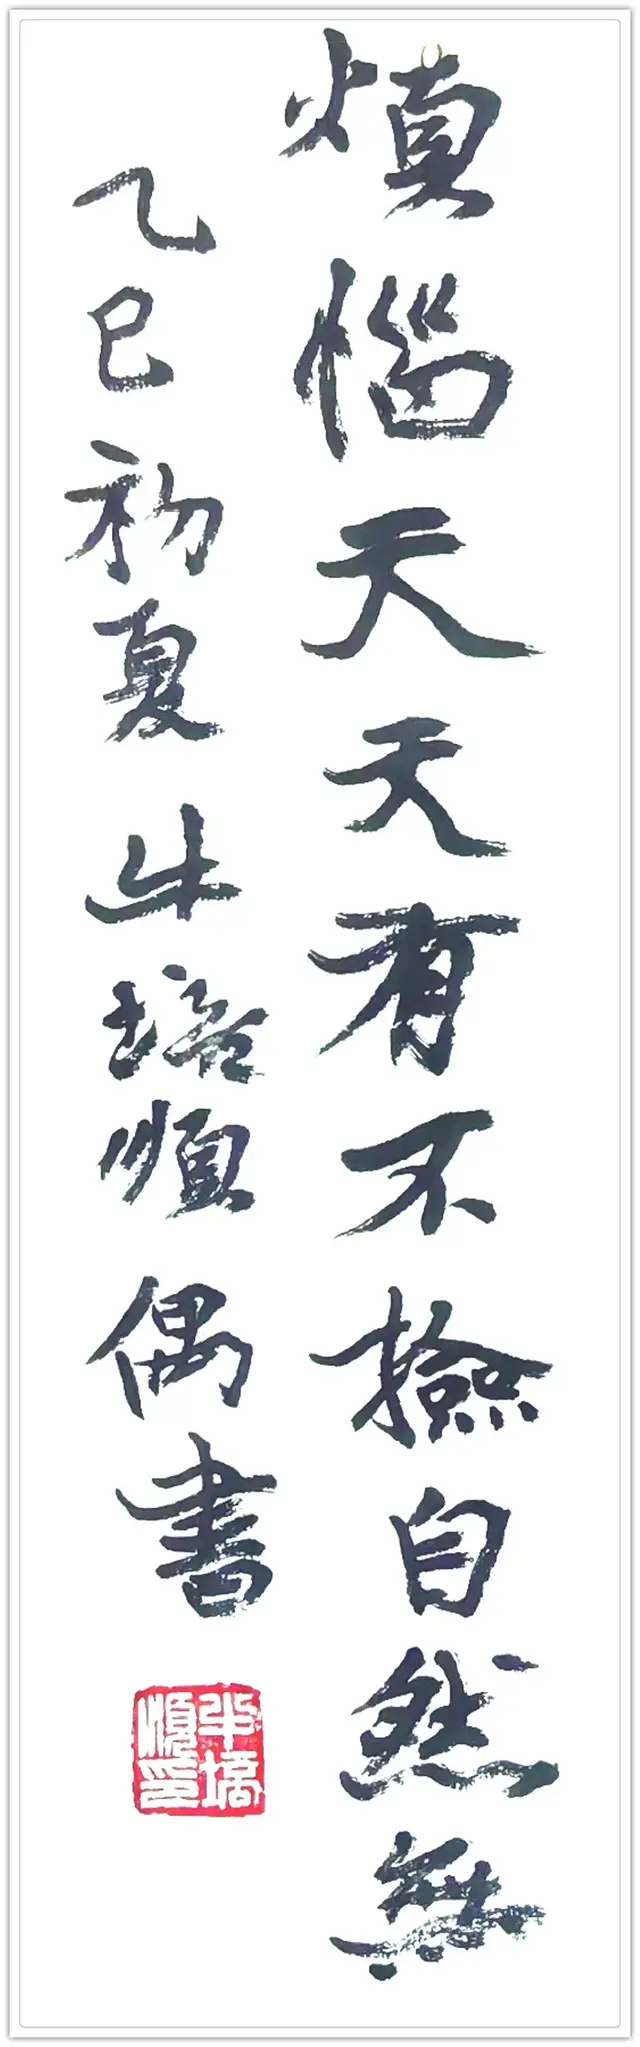 煩惱天天有不撿自然無
乙巳初夏 牛培順偶書
牛培
順印